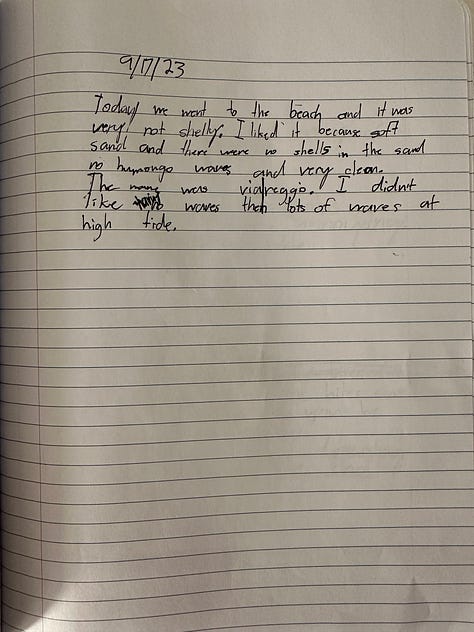 9/7/23
Today we went to the beach and it was
very not shelly. I liked it because soft
sand and there were no shells in the sand
no humongo waves and very clean.
The name was viareggo. I didnt
like no waves then lots of waves at
high tide.